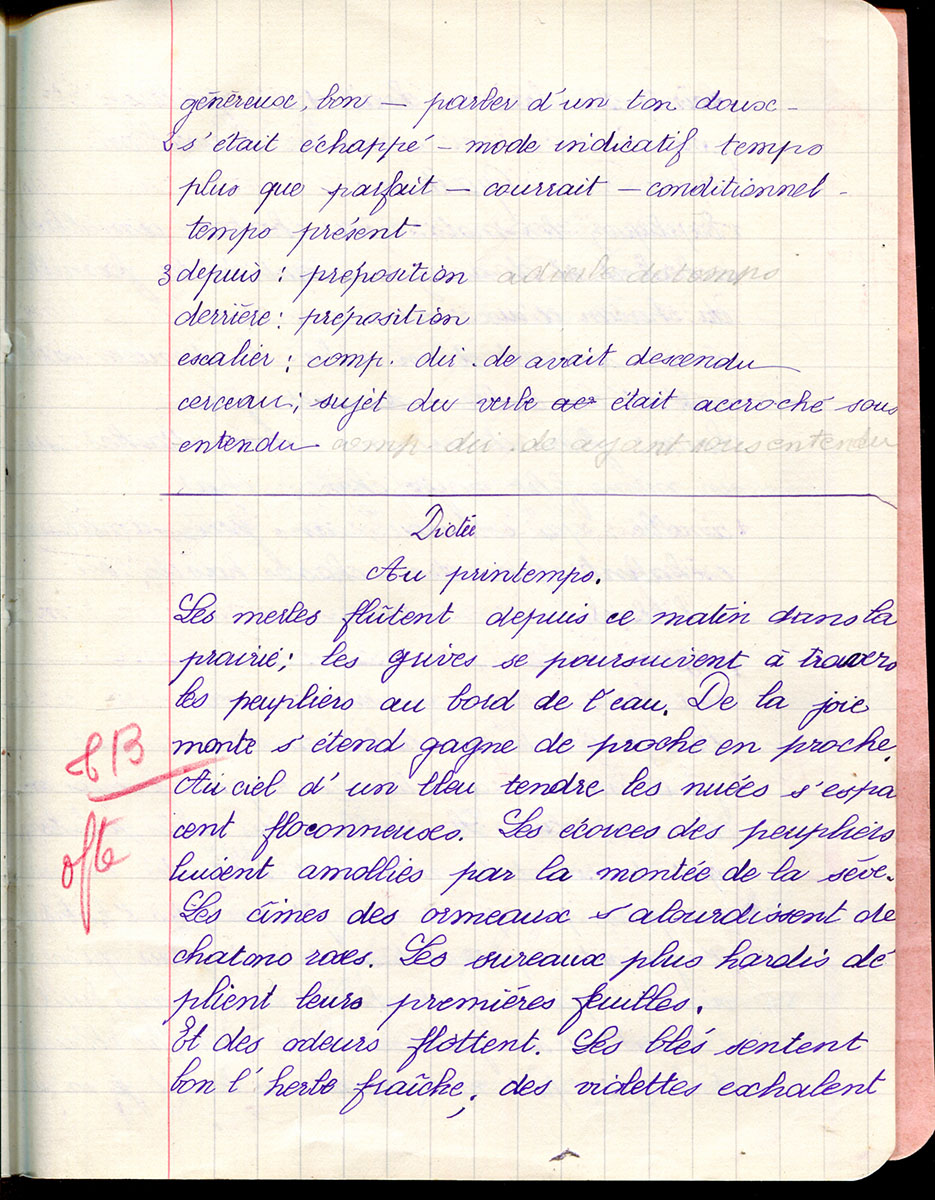 généreux, bon — parler d'un ton doux -
2 s'était échappé - mode indicatif temps
plus que parfait - courrait - conditionnel -
temps présent
3 depuis : préposition adverbe de temps
derrière : préposition
escalier : comp. dir. de avait descendu
cerceau ; sujet du verbe ac était accroché sous
entendu comp. dir. de ayant sous entendu
Dictée
Au printemps.
Les merles flûtent depuis ce matin dans la
prairie ; les grives se poursuivent à travers
les peupliers au bord de l'eau. De la joie
monte s'étend gagne de proche en proche.
8 B
Au ciel d'un bleu tendre les nuées s'espa
cent floconneuses. Les écorces des peupliers
0 fte
luisent amollies par la montée de la sève.
Les cîmes des ormeaux s'alourdissent de
chatons roses. Les sureaux plus hardis dé
plient leurs premières feuilles.
Et des odeurs flottent. Les blés sentent
bon l'herbe fraîche ; des violettes exhalent